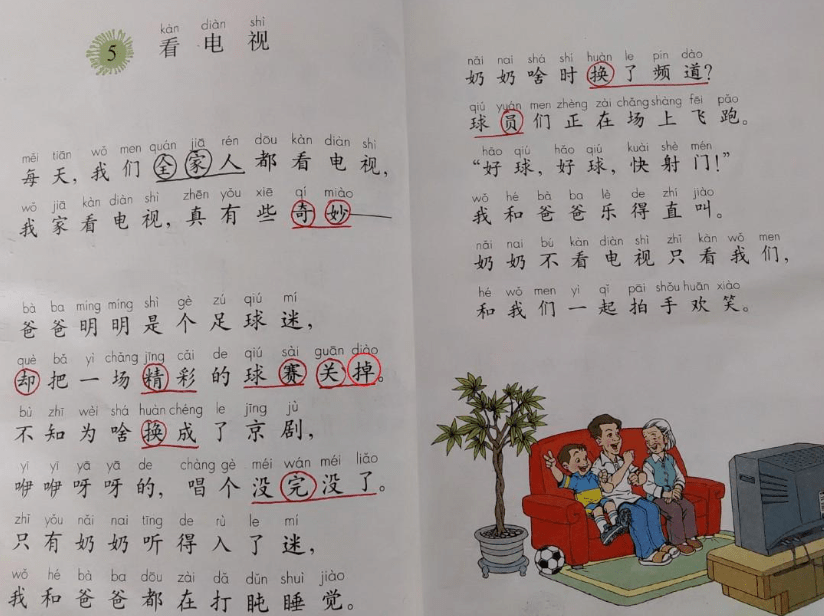 5
kàn diàn shì
看电视
měi tiān wǒ men quán jiā rén dōu kàn diàn shì
每天，我们全家人都看电视，
wǒ jiā kàn diàn shì zhēn yǒu xiē qí miào
我家看电视，真有些奇妙——
bà ba míng míng shì gè zú qiú mí
爸爸明明是个足球迷，
què bǎ yì chǎng jīng cǎi de qiú sài guān diào
却把一场精彩的球赛关掉。
bù zhī wèi shá huàn chéng le jīng jù
不知为啥换成了京剧，
yī yī yā yā de chàng gè méi wán méi liǎo
咿咿呀呀的，唱个没完没了。
zhǐ yǒu nǎi nai tīng de rù le mí
只有奶奶听得入了迷，
wǒ hé bà ba dōu zài dǎ dǔn shuì jiào
我和爸爸都在打盹睡觉。
nǎi nai shá shí huàn le pín dào
奶奶啥时换了频道？
qiú yuán men zhèng zài chǎng shàng fēi pǎo
球员们正在场上飞跑。
hǎo qiú hǎo qiú kuài shè mén
“好球，好球，快射门！”
wǒ hé bà ba lè de zhí jiào
我和爸爸乐得直叫。
nǎi nai bù kàn diàn shì zhǐ kàn wǒ men
奶奶不看电视只看我们，
hé wǒ men yì qǐ pāi shǒu huān xiào
和我们一起拍手欢笑。